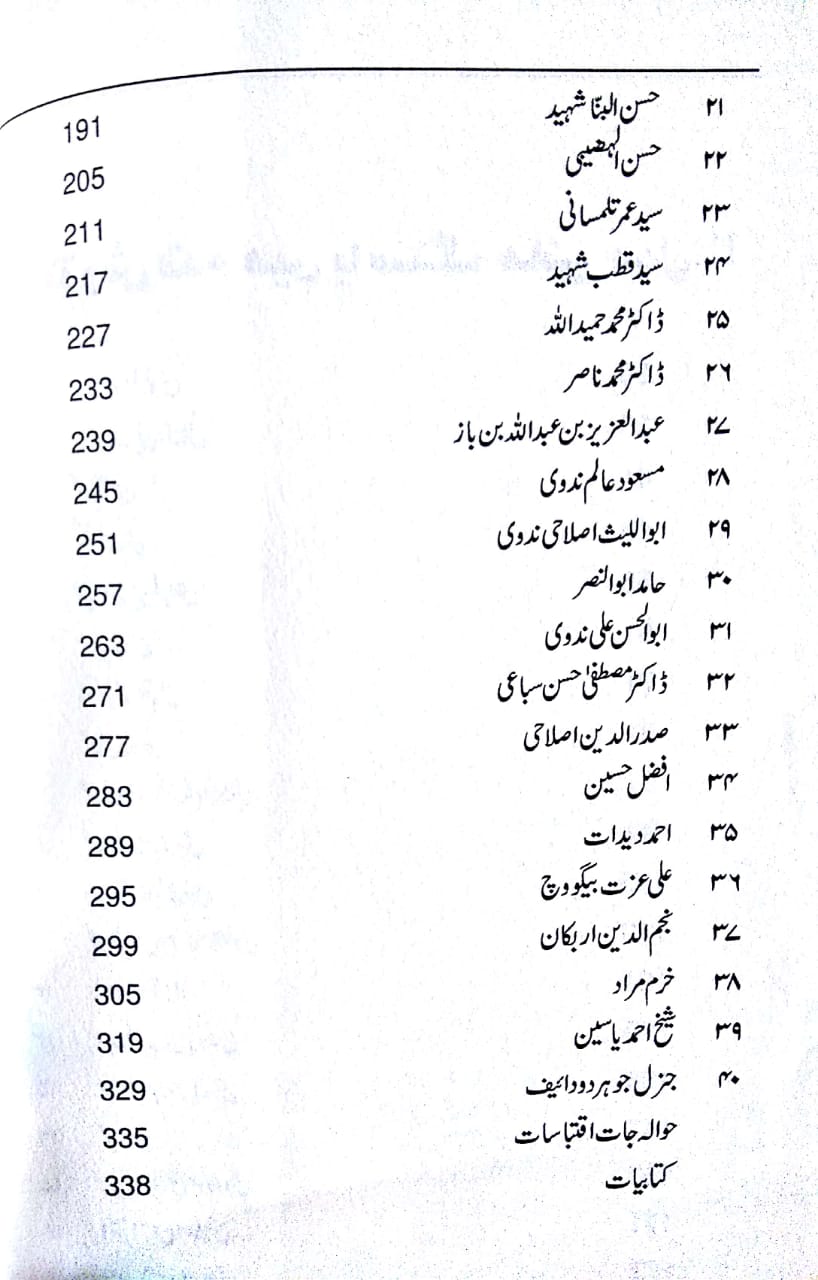 ۲۱ حسن البنّا شہید 191
۲۲ حسن الہضیبی 205
۲۳ سید عمر تلمسانی 211
۲۴ سید قطب شہید 217
۲۵ ڈاکٹر محمد حمید اللہ 227
۲۶ ڈاکٹر محمد ناصر 233
۲۷ عبدالعزیز بن عبداللہ بن باز 239
۲۸ مسعود عالم ندوی 245
۲۹ ابواللیث اصلاحی ندوی 251
۳۰ حامد ابوالنصر 257
۳۱ ابوالحسن علی ندوی 263
۳۲ ڈاکٹر مصطفیٰ حسن سباعی 271
۳۳ صدرالدین اصلاحی 277
۳۴ افضل حسین 283
۳۵ احمد دیدات 289
۳۶ علی عزت بیگووچ 295
۳۷ نجم الدین اربکان 299
۳۸ خرم مراد 305
۳۹ شیخ احمد یاسین 319
۴۰ جنرل جوہر دودائیف 329
حوالہ جات اقتباسات 335
کتابیات 338